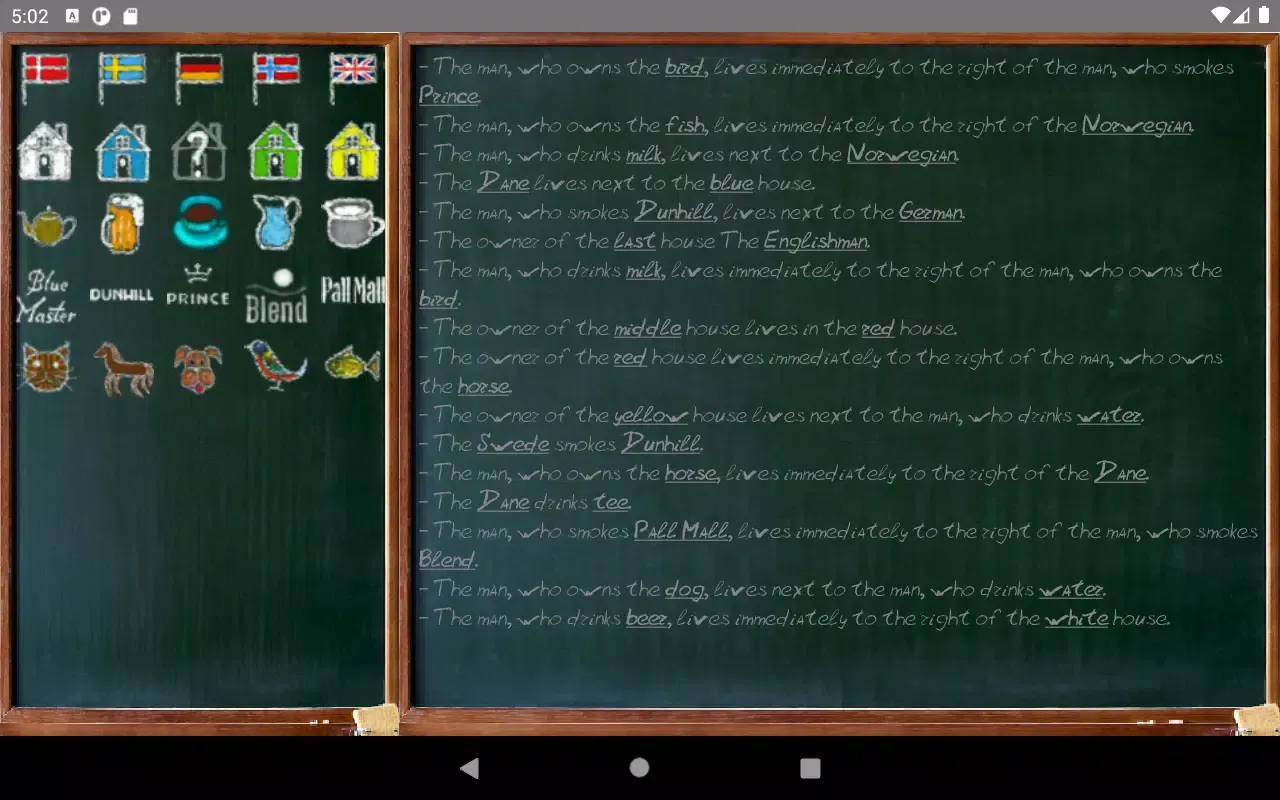 5:02
A
?
Blue
Master
DUNHILL
PRINCE
Blend
Pall Mall
- The man, who owns the bird, lives immediately to the right of the man, who smokes
Prince.
- The man, who owns the fish, lives immediately to the right of the Norwegian.
- The man, who drinks milk, lives next to the Norwegian.
- The Dane lives next to the blue house.
- The man, who smokes Dunhill, lives next to the German.
- The owner of the last house The Englishman.
- The man, who drinks milk, lives immediately to the right of the man, who owns the
bird.
- The owner of the middle house lives in the red house.
- The owner of the red house lives immediately to the right of the man, who owns
the horse.
- The owner of the yellow house lives next to the man, who drinks water.
- The Swede smokes Dunhill.
- The man, who owns the horse, lives immediately to the right of the Dane.
- The Dane drinks tee.
- The man, who smokes Pall Mall, lives immediately to the right of the man, who smokes
Blend.
- The man, who owns the dog, lives next to the man, who drinks water.
- The man, who drinks beer, lives immediately to the right of the white house.